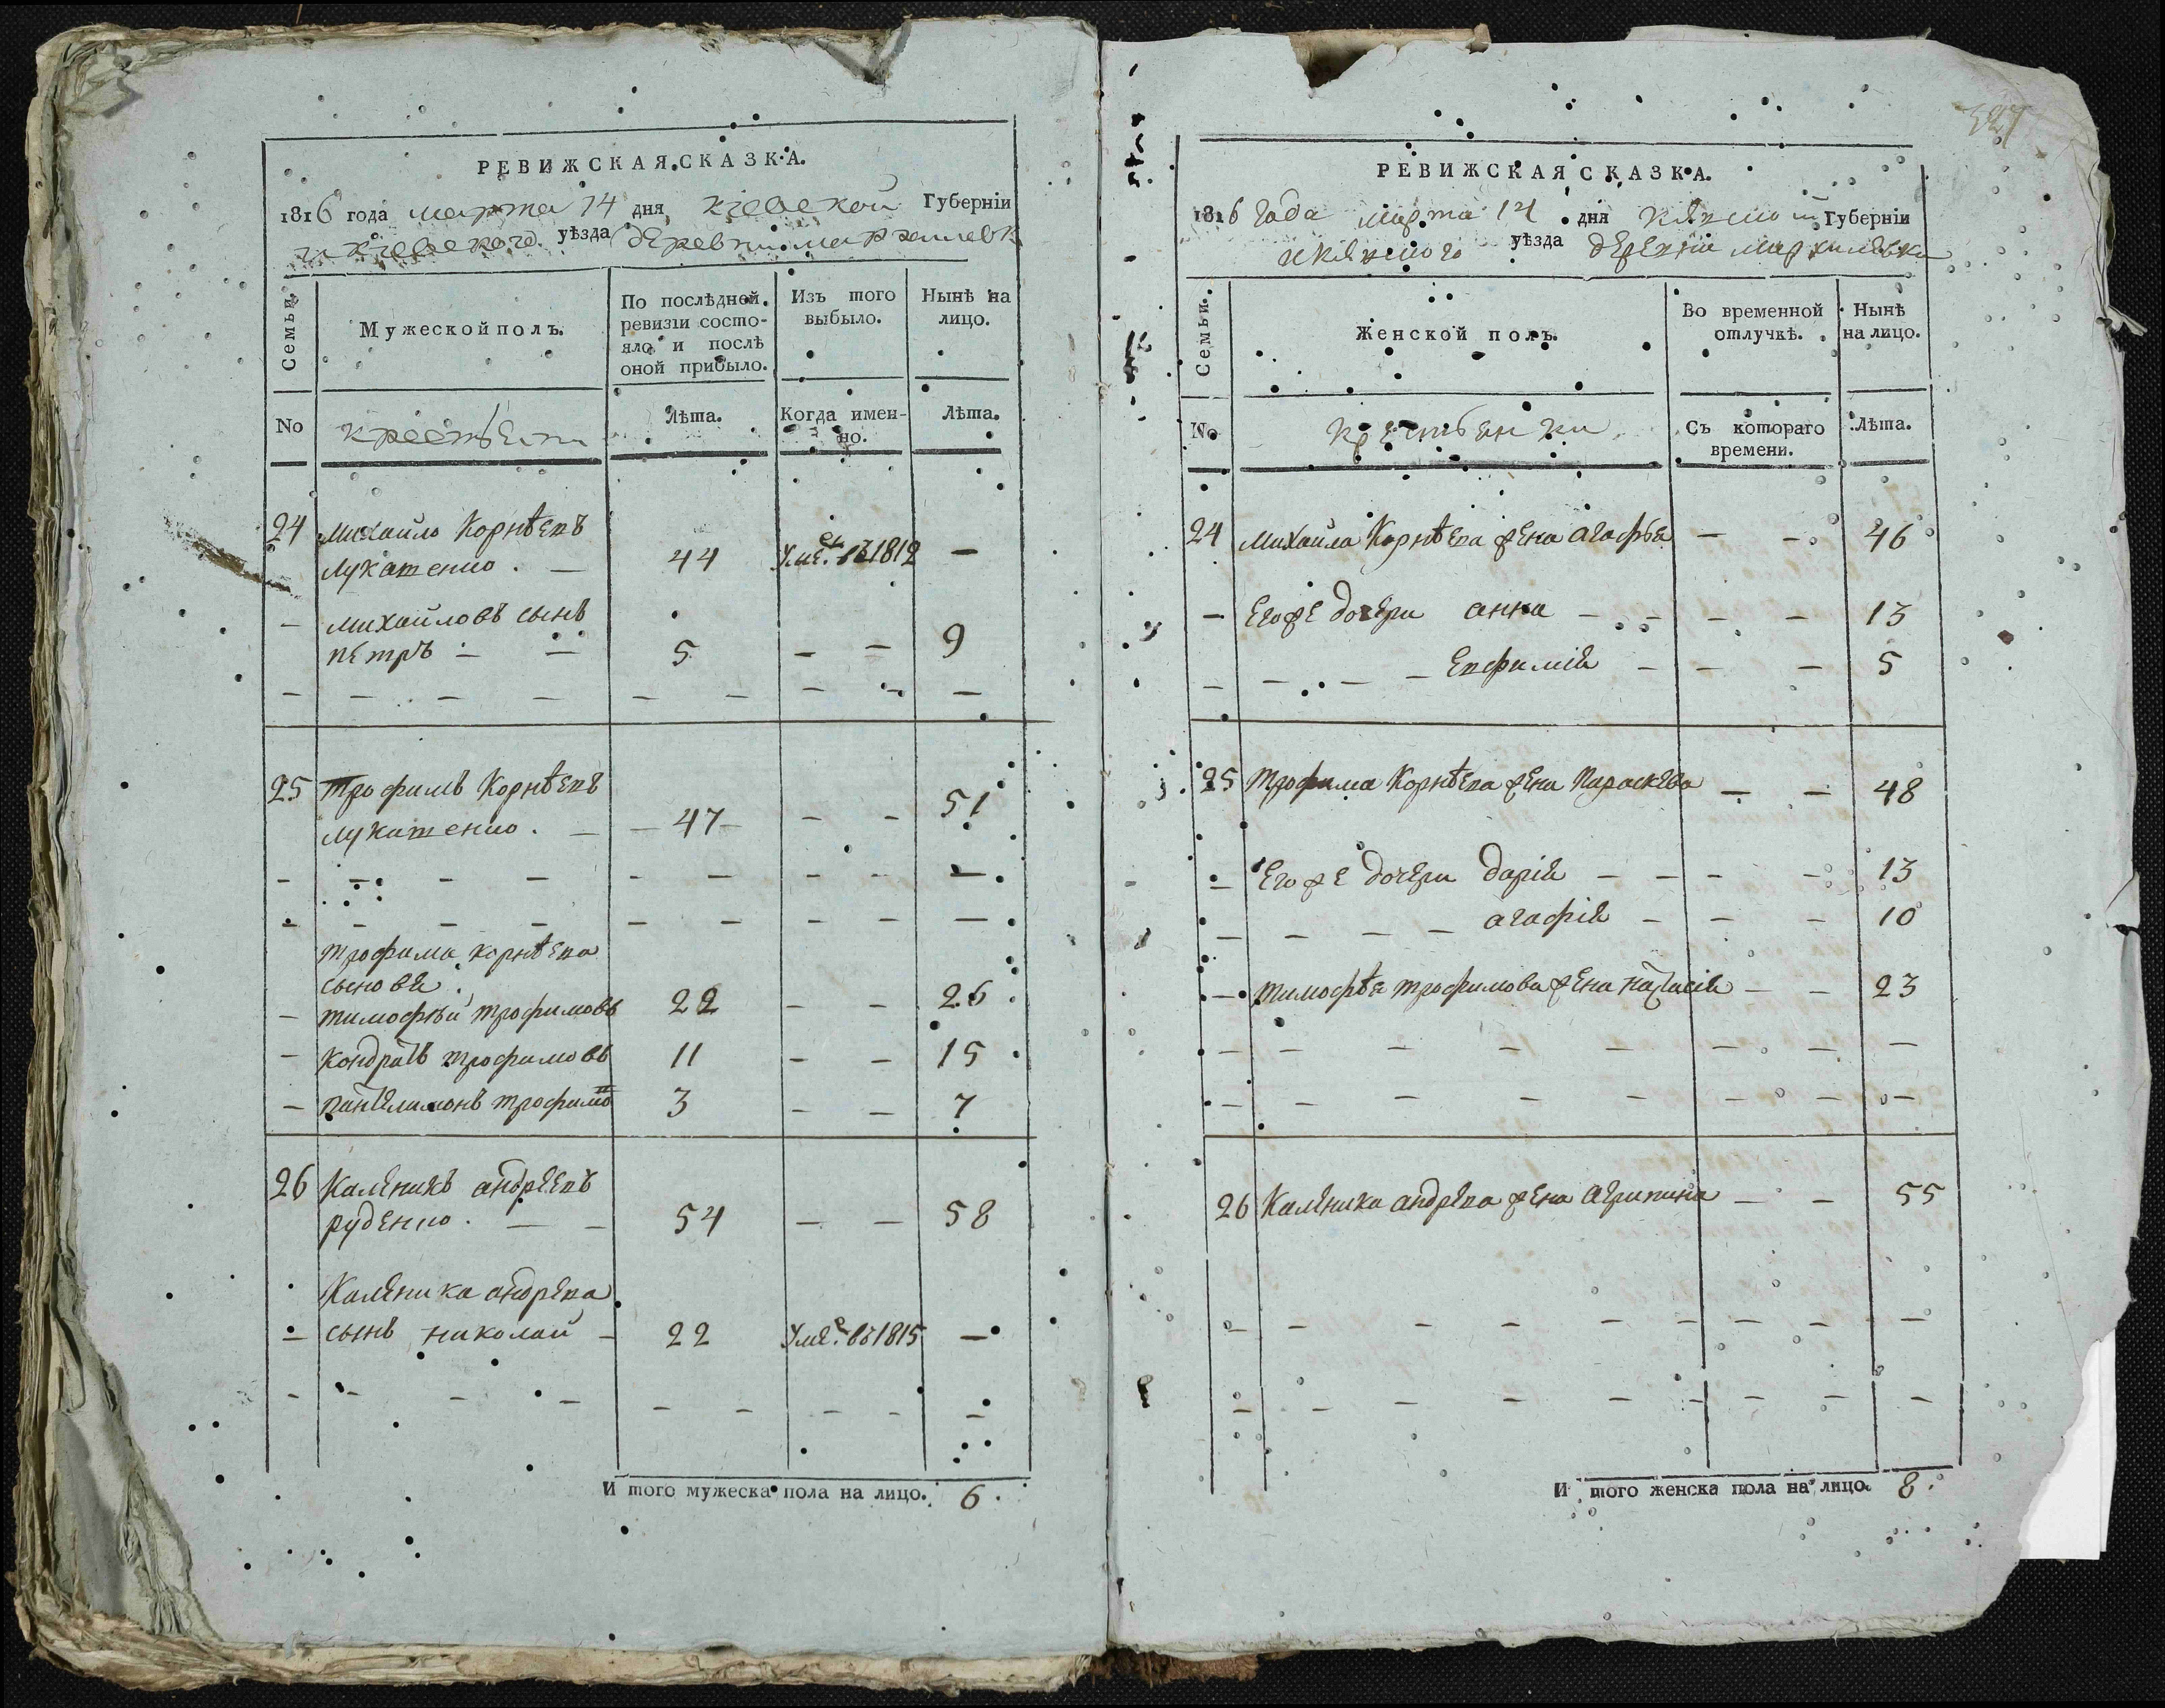 РЕВИЖСКАЯ СКАЗКА.
1816 года марта 14 дня Киевской Губернїи
и Киевского уѣзда деревни мархалевк
Семьи.
Мужеской полъ.
По послѣдней ревизїи состояло и послѣ оной прибыло.
Изъ того выбыло.
Нынѣ на лицо.
No
крестьяни
Лѣта.
Когда именно.
Лѣта.
24 Михайло Корнѣевъ
Лукашенко . — 44 Уме. въ 1812 —
— михайловъ сынъ
петръ — — 5 — — 9
25 Трофимъ Корнѣевъ
лукашенко . — — 47 — — — 51
трофима корнѣева
сыновя
— тимофѣй трофимовъ 22 — — 26
— кондратъ трофимовъ 11 — — 15
— пантелимонъ трофимо 3 — — 7
26 Каленикъ андреевъ
руденко . — — 54 — — 58
Каленика андреева
— сынъ николай — 22 Уме. въ 1815 —
И того мужеска пола на лицо. 6.
327
РЕВИЖСКАЯ СКАЗКА.
1816 Года марта 14 дня Киевской Губернїи
и Киевского уѣзда деревни мархалевки
Семьи.
Женской полъ.
Во временной отлучкѣ.
Нынѣ на лицо.
No
крестьянки
Съ котораго времени.
Лѣта.
24 Михайла Корнѣева жена агафья — — 46
— Егоже дочери анна — — — — 13
— — — — Евфимия — — — 5
25 Трофима Корнѣева жена Параскева — — 48
— Егоже дочери дарїя — — — — 13
— — — — агафїя — — — 10
— тимофѣя трофимова жена настасїя — — 23
26 Каленика андреева жена агрипина — — 55
И того женска пола на лицо. 8.